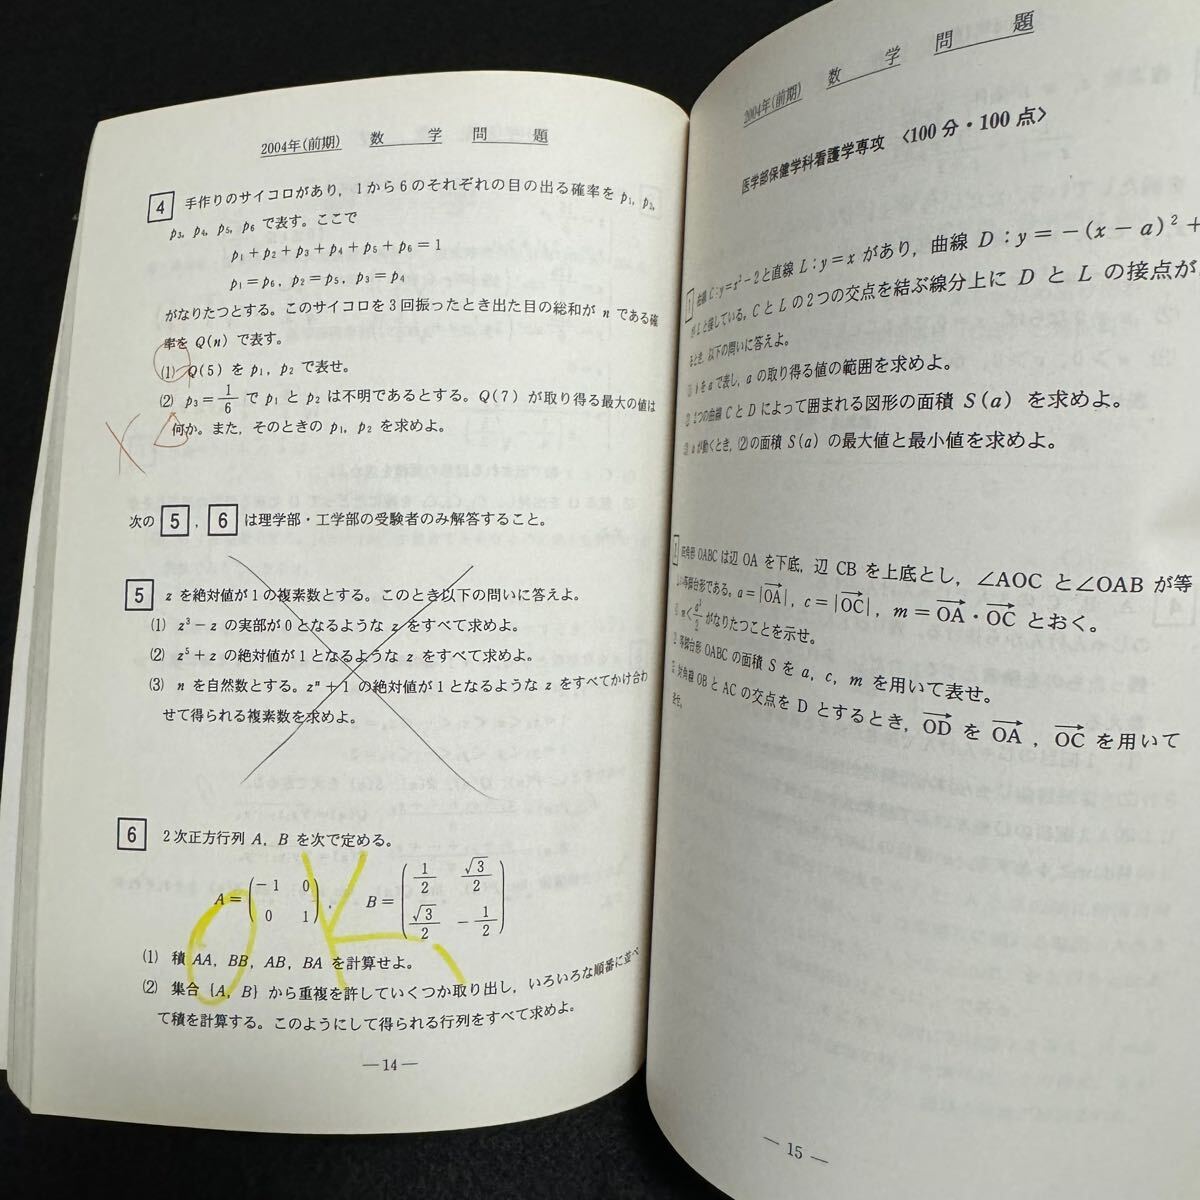 2004年(前期) 数 学 問 題
4 手作りのサイコロがあり，1から6のそれぞれの目の出る確率を p₁, p₂,
p₃, p₄, p₅, p₆ で表す。ここで
p₁＋p₂＋p₃＋p₄＋p₅＋p₆＝1
p₁＝p₆, p₂＝p₅, p₃＝p₄
がなりたつとする。このサイコロを3回振ったとき出た目の総和が n である確
率を Q(n) で表す。
(1) Q(5) を p₁, p₂ で表せ。
(2) p₃＝1/6 で p₁ と p₂ は不明であるとする。Q(7) が取り得る最大の値は
何か。また，そのときの p₁, p₂ を求めよ。
次の 5 , 6 は理学部・工学部の受験者のみ解答すること。
5 z を絶対値が1の複素数とする。このとき以下の問いに答えよ。
(1) z³－z の実部が0となるような z をすべて求めよ。
(2) z⁵＋z の絶対値が1となるような z をすべて求めよ。
(3) n を自然数とする。zⁿ＋1 の絶対値が1となるような z をすべてかけ合わ
せて得られる複素数を求めよ。
6 2次正方行列 A, B を次で定める。
A＝(－1 0
0 1), B＝(1/2 √3/2
√3/2 －1/2)
OK
(1) 積 AA, BB, AB, BA を計算せよ。
(2) 集合 {A, B} から重複を許していくつか取り出し，いろいろな順番に並べ
て積を計算する。このようにして得られる行列をすべて求めよ。
―14―
2004年(前期) 数 学 問 題
医学部保健学科看護学専攻 〈100分・100点〉
1 曲線 C：y＝x²－2と直線 L：y＝x があり，曲線 D：y＝－(x－a)²＋
が L と接している。C と L の2つの交点を結ぶ線分上に D と L の接点が
るとき，以下の問いに答えよ。
b を a で表し，a の取り得る値の範囲を求めよ。
2つの曲線 C と D によって囲まれる図形の面積 S(a) を求めよ。
a が動くとき，(2)の面積 S(a) の最大値と最小値を求めよ。
角形 OABC は辺 OA を下底，辺 CB を上底とし，∠AOC と∠OAB が等
等脚台形である。a＝|OA|, c＝|OC|, m＝OA・OC とおく。
m＜a²/2 がなりたつことを示せ。
等脚台形 OABC の面積 S を a, c, m を用いて表せ。
対角線 OB と AC の交点を D とするとき，OD を OA, OC を用いて
表せ。
―15―